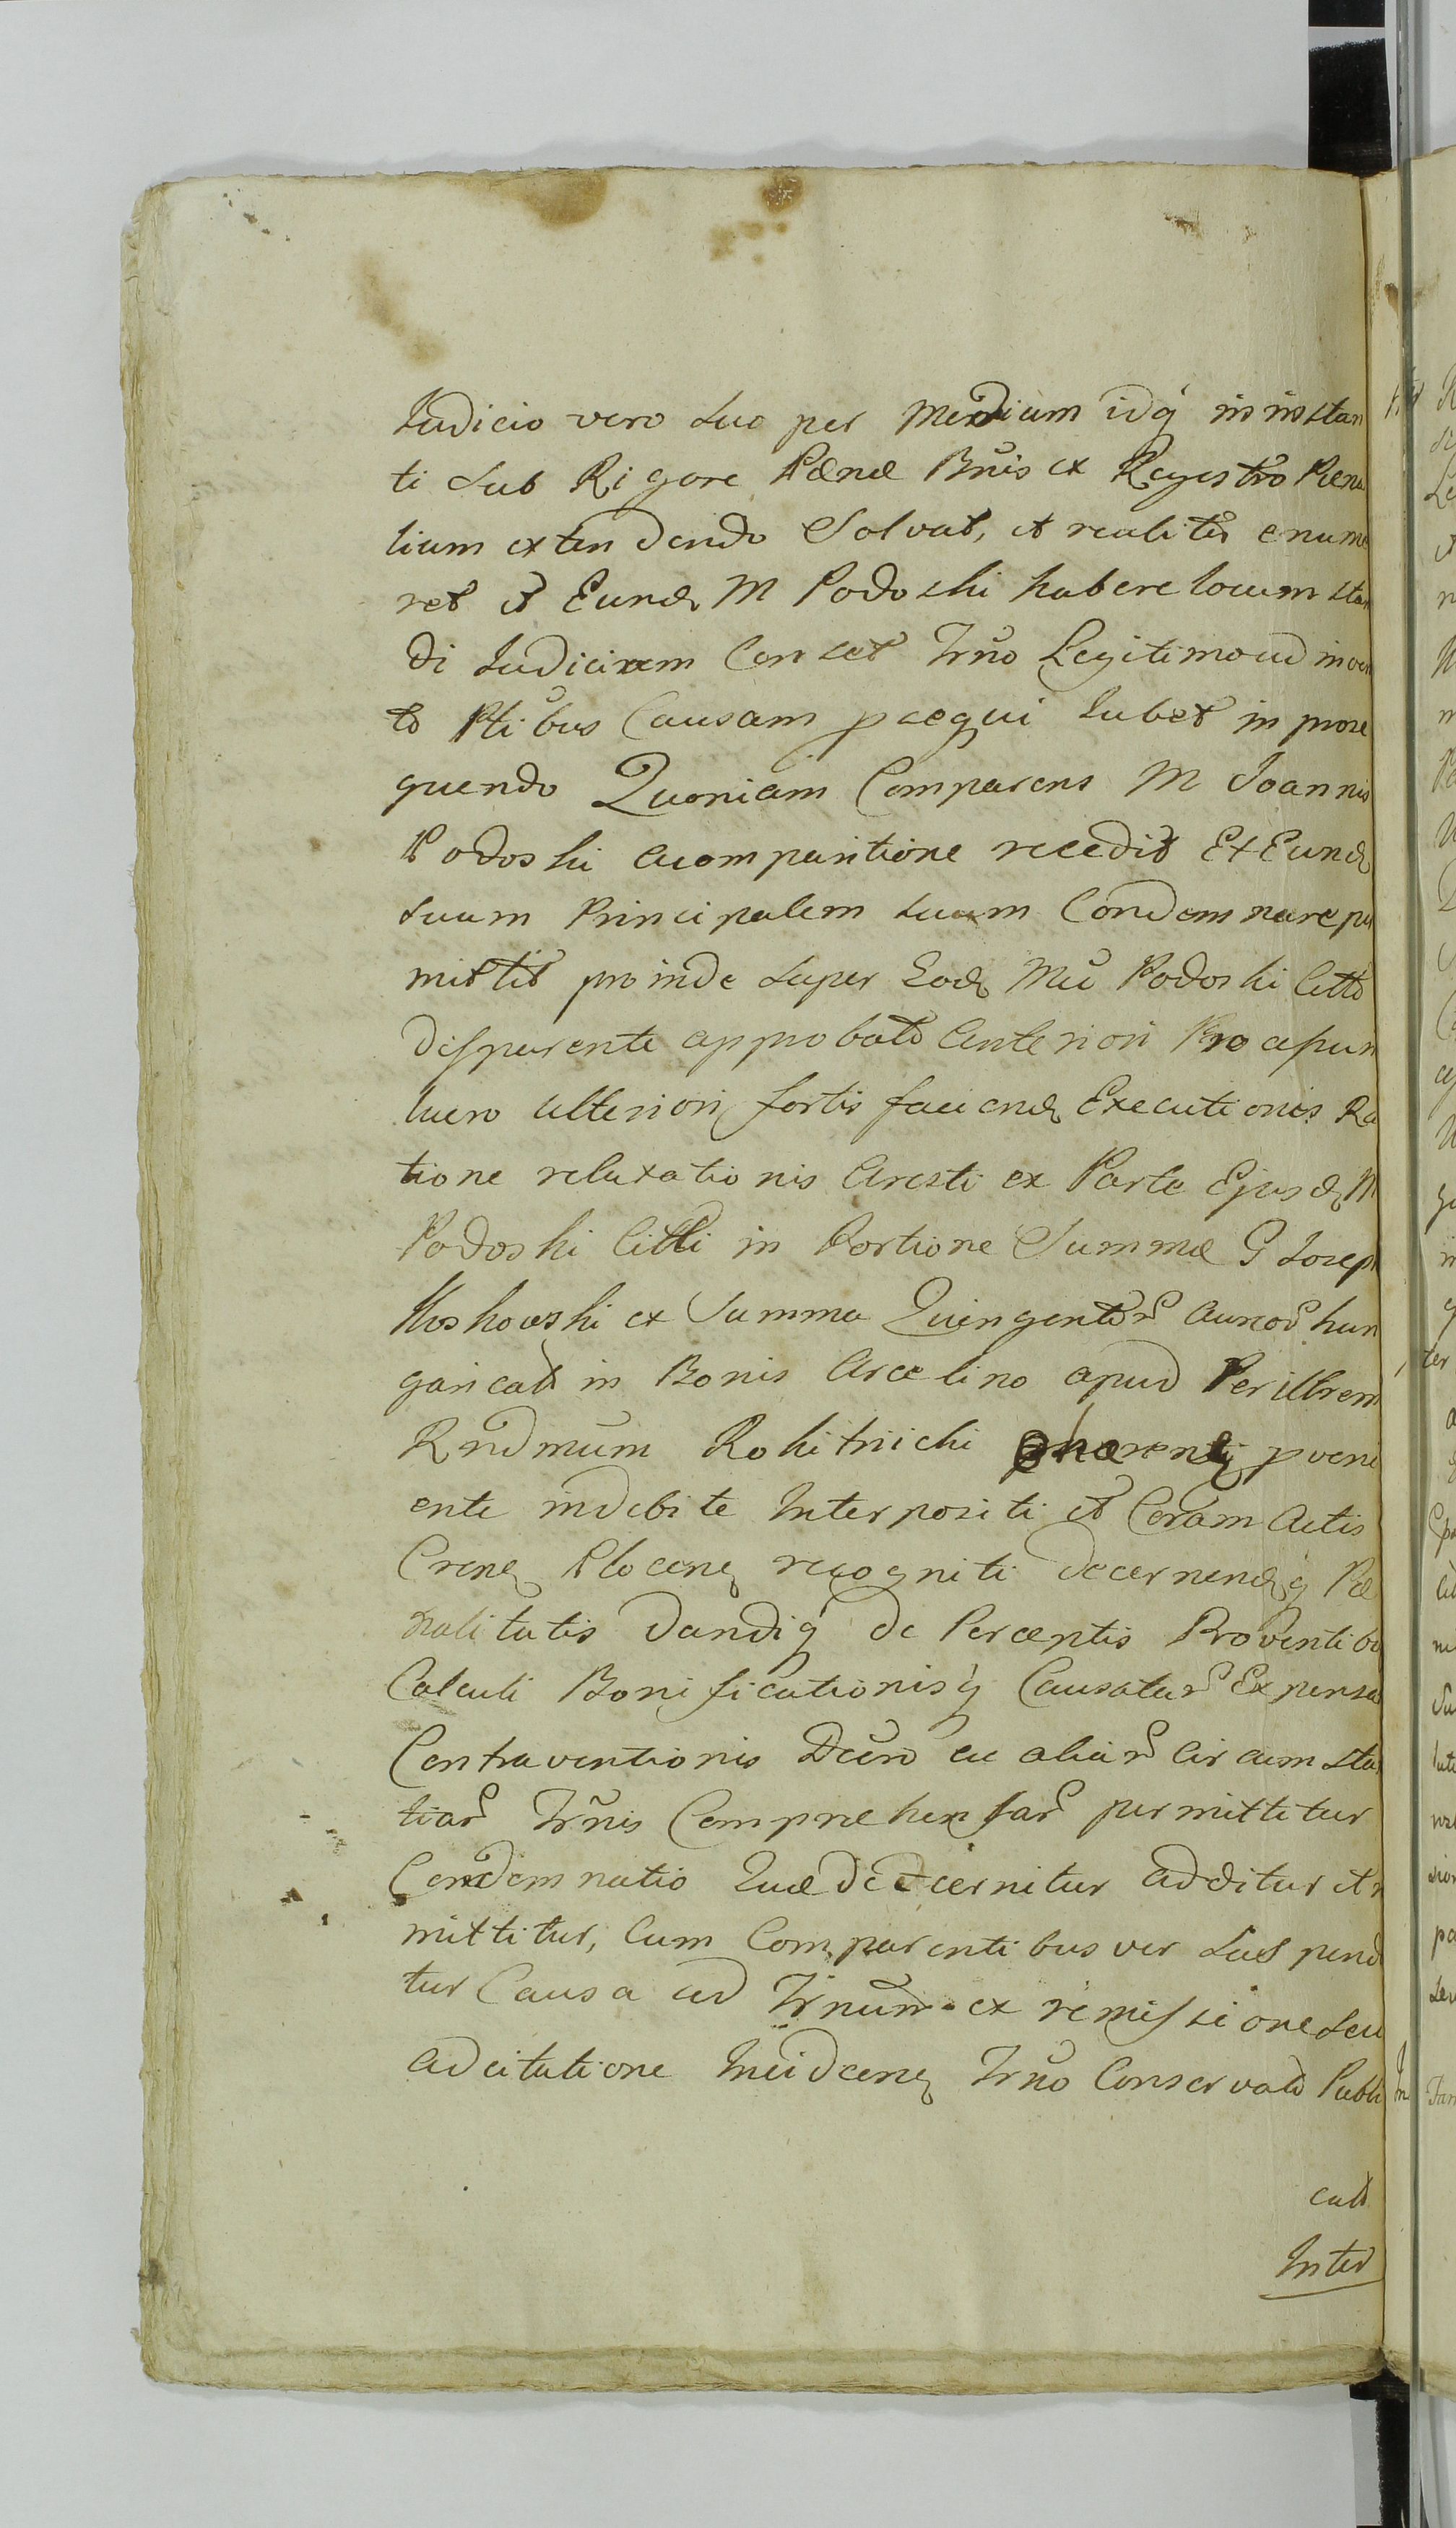 Iudicio vero suo per Medium idq́ in instan
ti sub Rigore Pænæ Bnis ex Regestro Pæna
lium extendendo Solvat, et realiter enume
ret et Eund M Podoski habere locum stan
di Iudicium Censet Trno Legitimo ad inven
to Ptibus Causam p aequi Iubet in prose
quendo Quoniam Comparens M Joannis
Podoski acomparitione recedit Et Eund
suum Principalem suum Condemnare per
mittit proinde super Eod Mu Podoski Citto
disparente approbato Anteriori Pro
vero ulteriori fortis faciend Executionis Ra
tione relaxationis Aresti ex Parte Ejusd M
Podoski Citti in Portione Summæ G Joseph
Koskowski ex Summa Quingentor Aureor hun
garicali in Bonis Arcelino apud Perillrem
Rndmum Rokitnicki pveni
ente indebite Interpositi et Coram Actis
Crens Plocens recogniti decernendq́ Pæ
nalitatis dandiq́ de Perceptis Proventibu
Calculi Bonificationisq́ Causatar Expensa
Contraventionis Dcior ac aliar Circumstan
tiar Trnis Comprehensar permittitur
Condemnatio Quæ decernitur additur et
mittitur, Cum Comparentibus ver Suspendi
tur Causa ad Trnum ex remissione seu
adcitatione Incidcens Trno Conservato Publi
cato
Inter